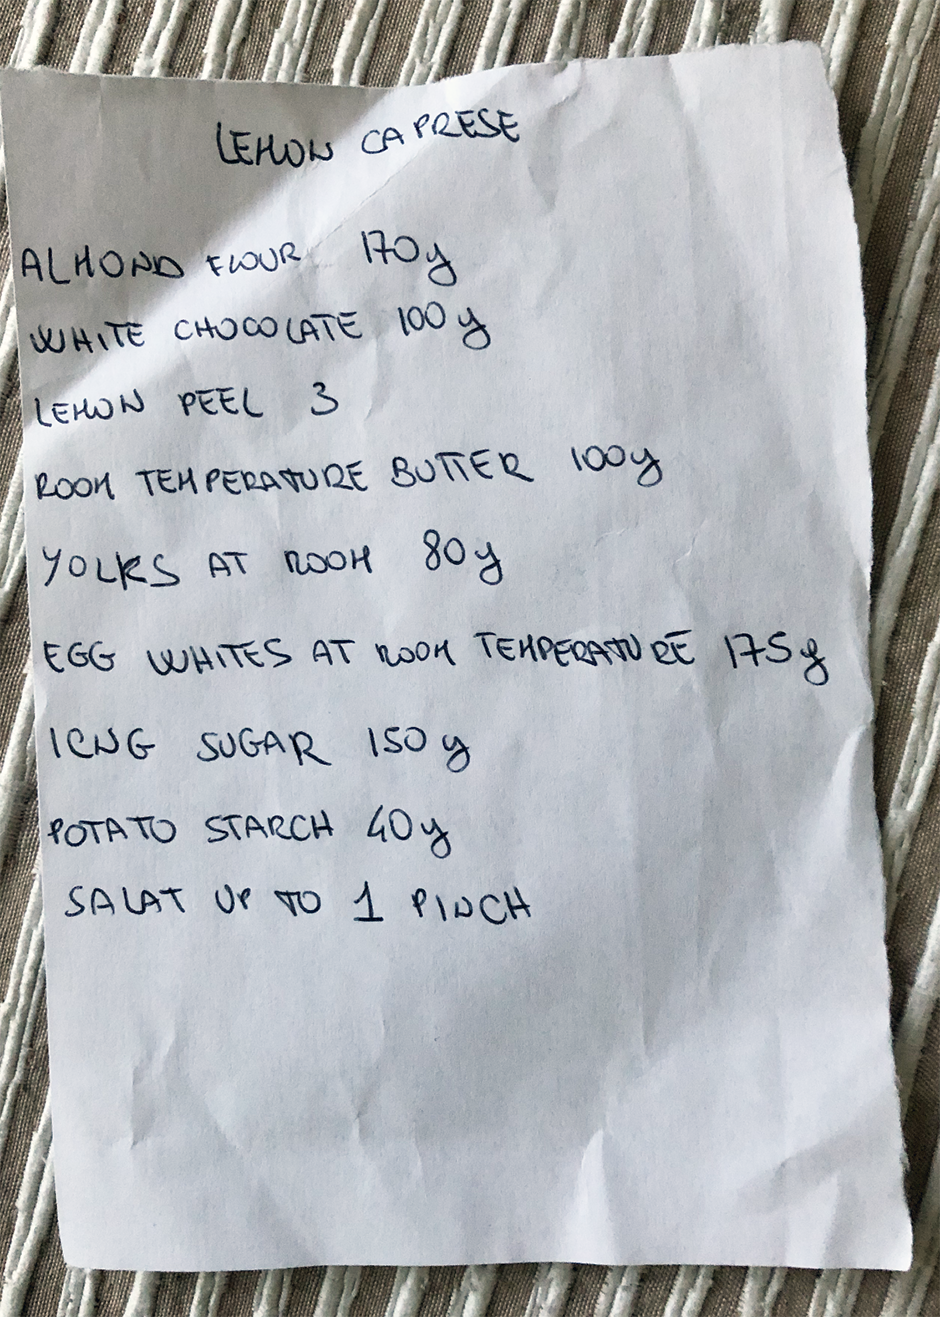 LEMON CAPRESE
ALMOND FLOUR 170g
WHITE CHOCOLATE 100g
LEMON PEEL 3
ROOM TEMPERATURE BUTTER 100g
YOLKS AT ROOM 80g
EGG WHITES AT ROOM TEMPERATURE 175g
ICNG SUGAR 150g
POTATO STARCH 40g
SALAT UP TO 1 PINCH